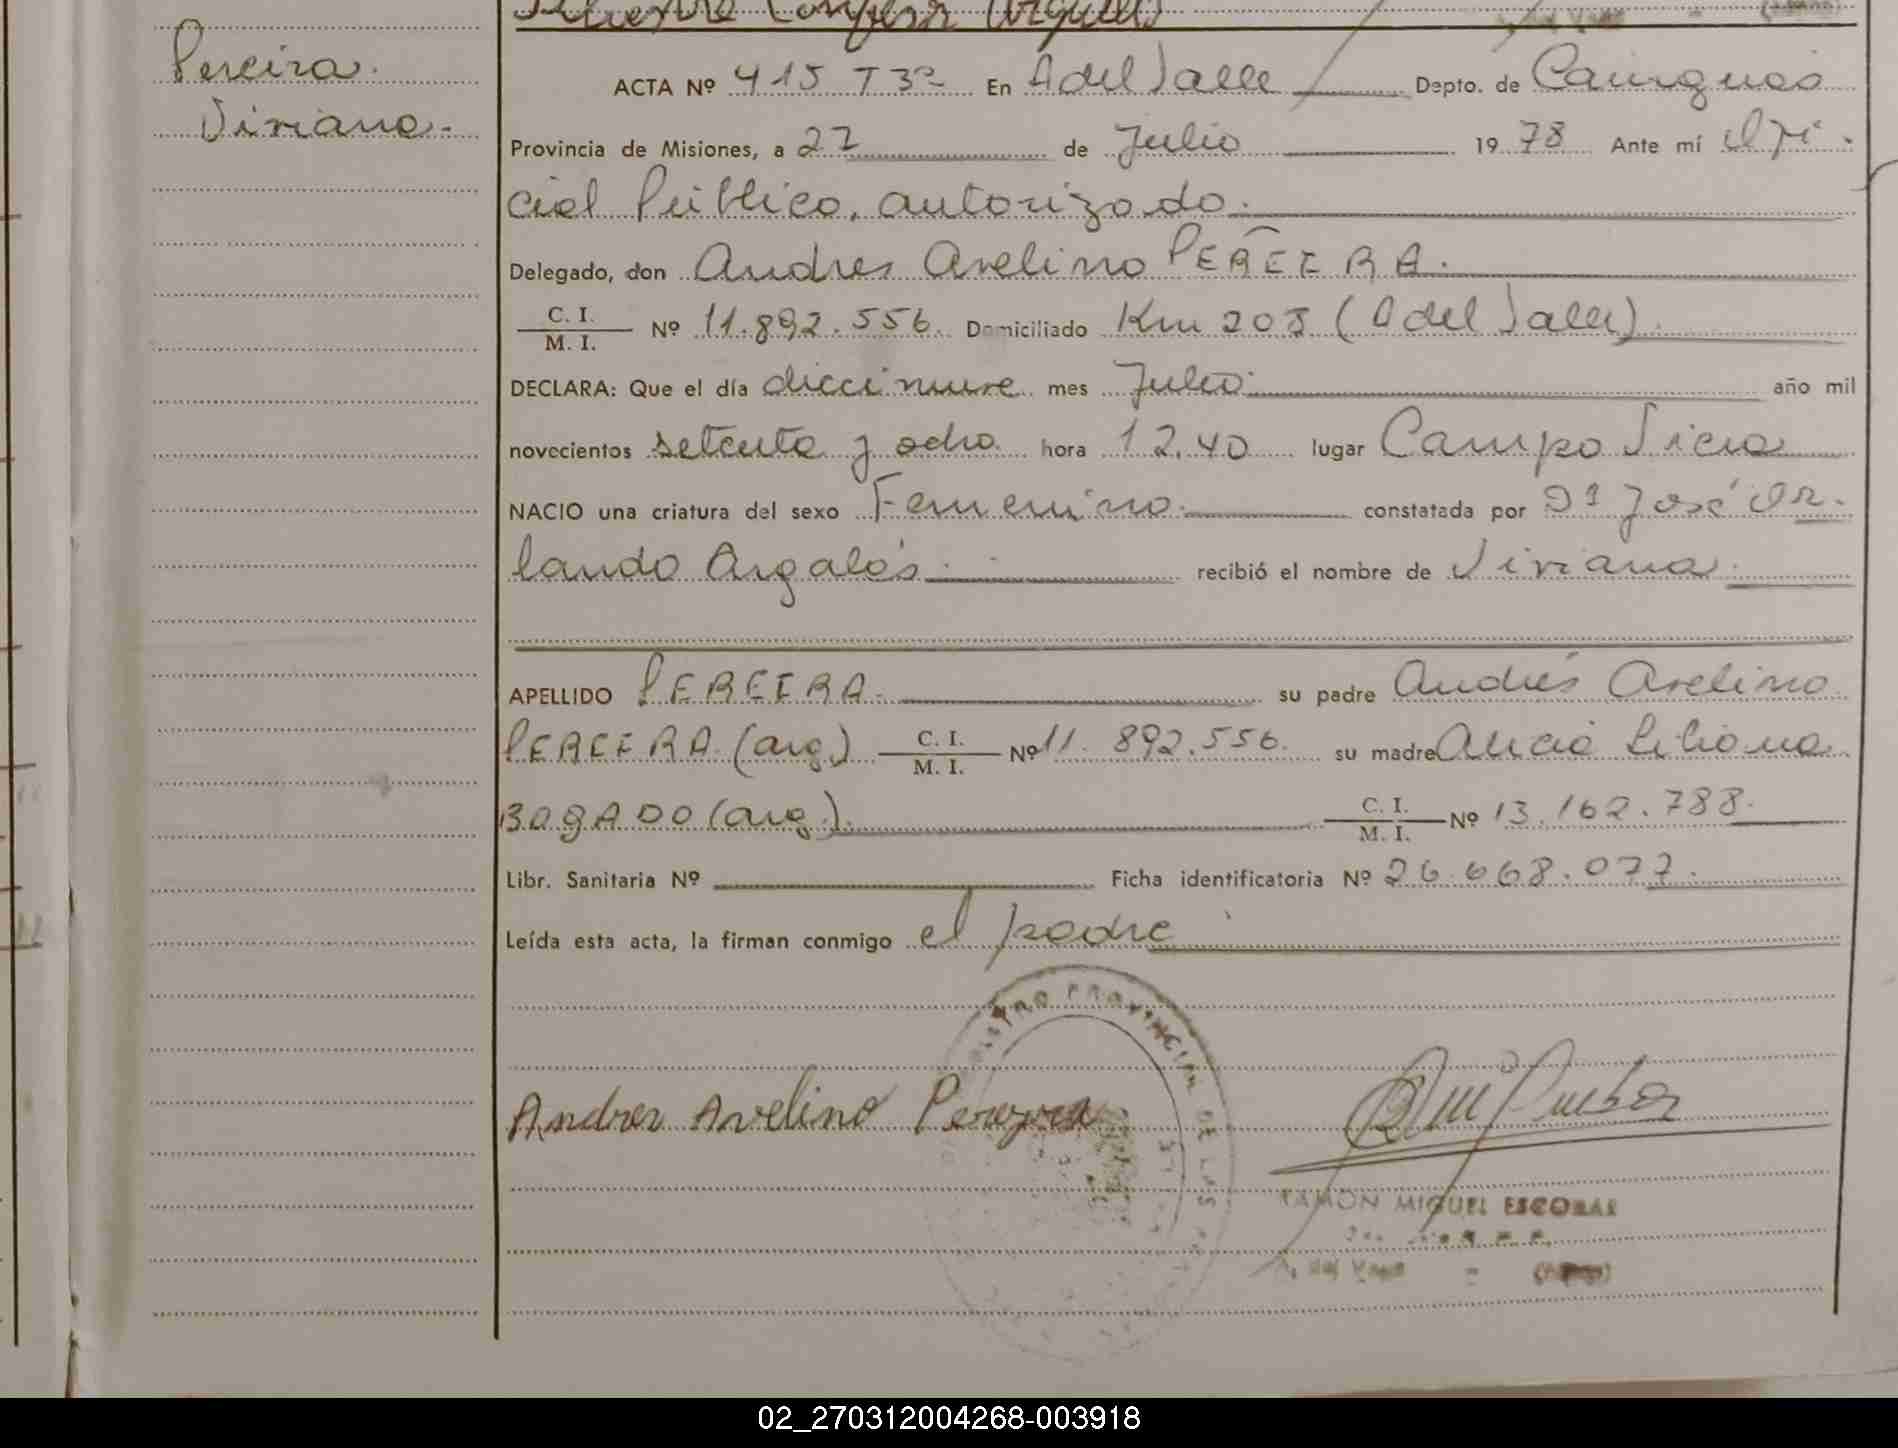 Pereira
Viviana.-
ACTA Nº 415 T3º En A del Valle Depto. de Cainguas
Provincia de Misiones, a 27 de Julio 1978 Ante mí Ofi-
cial Público, autorizado.
Delegado, don Andres Avelino PEREIRA.
C. I.
M. I. Nº 11.892.556. Domiciliado Km 203 (A del Valle).
DECLARA: Que el día diecinueve mes Julio año mil
novecientos setenta y ocho hora 12.40 lugar Campo Viera
NACIO una criatura del sexo Femenino. constatada por Dº José Or-
lando Argalás. recibió el nombre de Viviana.
APELLIDO PEREIRA. su padre Andrés Avelino
PEREIRA (arg.) C. I.
M. I. Nº 11.892.556. su madre Alicia Liliana
BOGADO (arg.). C. I.
M. I. Nº 13.162.788.
Libr. Sanitaria Nº Ficha identificatoria Nº 26.668.077.
Leída esta acta, la firman conmigo el padre
PROVINCIAL DE LAS
Andres Avelino Pereyra
RAMON MIGUEL ESCOBAR
A. del Valle
02_270312004268-003918